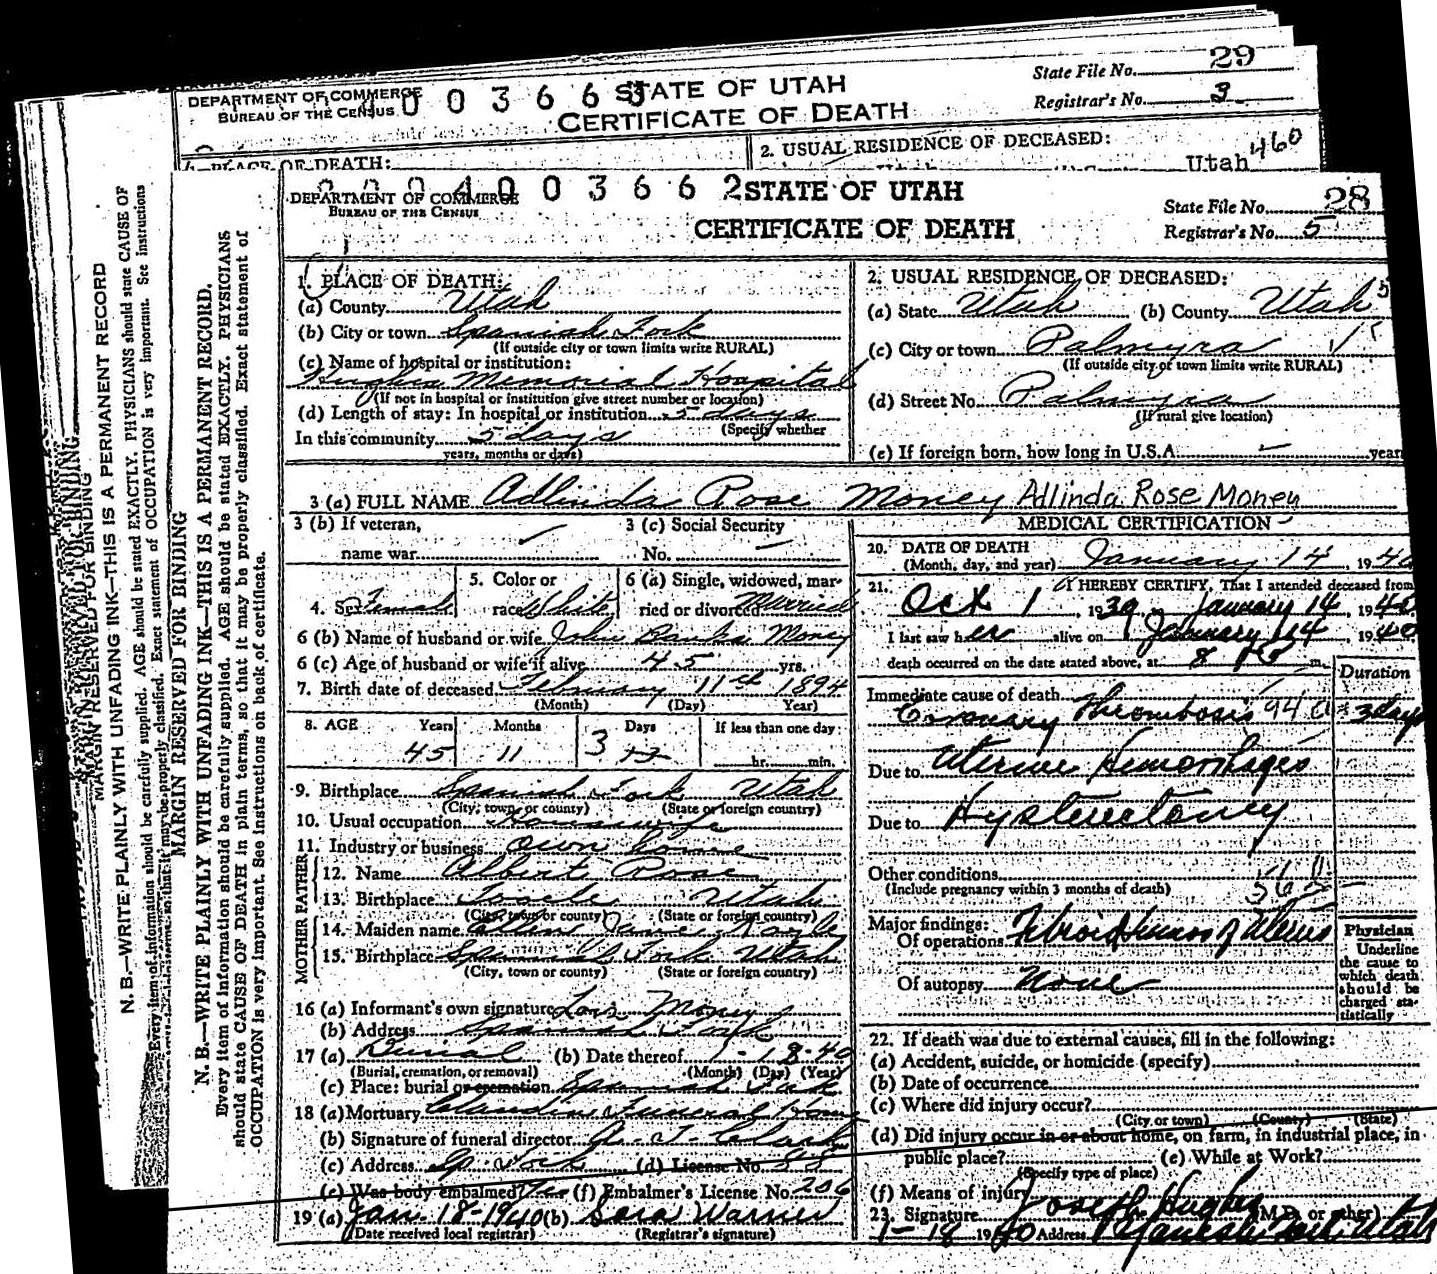 DEPARTMENT OF COMMERCE
BUREAU OF THE CENSUS
0 0 3 6 6 3
STATE OF UTAH
CERTIFICATE OF DEATH
State File No. 29
Registrar's No. 3
1. PLACE OF DEATH:
2. USUAL RESIDENCE OF DECEASED:
Utah 460
N. B.—WRITE PLAINLY WITH UNFADING INK—THIS IS A PERMANENT RECORD
Every item of information should be carefully supplied. AGE should be stated EXACTLY. PHYSICIANS should state CAUSE OF
DEATH in plain terms, so that it may be properly classified. Exact statement of OCCUPATION is very important. See instructions
MARGIN RESERVED FOR BINDING
MARGIN RESERVED FOR BINDING
N. B.—WRITE PLAINLY WITH UNFADING INK—THIS IS A PERMANENT RECORD.
Every item of information should be carefully supplied. AGE should be stated EXACTLY. PHYSICIANS
should state CAUSE OF DEATH in plain terms, so that it may be properly classified. Exact statement of
OCCUPATION is very important. See instructions on back of certificate.
DEPARTMENT OF COMMERCE
BUREAU OF THE CENSUS
4 0 0 3 6 6 2
STATE OF UTAH
CERTIFICATE OF DEATH
State File No. 28
Registrar's No. 5
1. PLACE OF DEATH:
(a) County Utah
(b) City or town Spanish Fork
(If outside city or town limits write RURAL)
(c) Name of hospital or institution:
Hughes Memorial Hospital
(If not in hospital or institution give street number or location)
(d) Length of stay: In hospital or institution 5 days
(Specify whether
In this community 5 days
years, months or days)
2. USUAL RESIDENCE OF DECEASED:
(a) State Utah (b) County Utah
(c) City or town Palmyra
(If outside city or town limits write RURAL)
(d) Street No. Palmyra
(If rural give location)
(e) If foreign born, how long in U.S.A. years
3 (a) FULL NAME Adlinda Rose Money Adlinda Rose Money
3 (b) If veteran,
name war
3 (c) Social Security
No.
4. Sex Female
5. Color or
race White
6 (a) Single, widowed, mar-
ried or divorced Married
6 (b) Name of husband or wife John Banks Money
6 (c) Age of husband or wife if alive 45 yrs.
7. Birth date of deceased February 11th 1894
(Month) (Day) Year)
8. AGE Years Months Days If less than one day
45 11 3 hr. min.
9. Birthplace Spanish Fork Utah
(City, town, or county) (State or foreign country)
10. Usual occupation Housewife
11. Industry or business own home
FATHER
12. Name Albert Rose
13. Birthplace Tooele Utah
(City, town or county) (State or foreign country)
MOTHER
14. Maiden name Jane
15. Birthplace Spanish Fork Utah
(City, town or county) (State or foreign country)
16 (a) Informant's own signature Lois Money
(b) Address Spanish Fork
17 (a) Burial (b) Date thereof 1-18-40
(Burial, cremation, or removal) (Month) (Day) (Year)
(c) Place: burial or cremation Spanish Fork
18 (a) Mortuary Claudin Funeral Home
(b) Signature of funeral director
(c) Address Sp. Fork (d) License No. 88
(e) Was body embalmed? Yes (f) Embalmer's License No. 206
19 (a) Jan. 18-1940 (b) Sara Warner
(Date received local registrar) (Registrar's signature)
MEDICAL CERTIFICATION
20. DATE OF DEATH
(Month, day, and year) January 14, 1940
21. I HEREBY CERTIFY, That I attended deceased from
Oct 1, 1939 to January 14 1940
I last saw her alive on January 14, 1940
death occurred on the date stated above, at 8 m.
Duration
Immediate cause of death
Coronary Thrombosis 94 a 3 days
Due to Uterine Hemorrhages
Due to Hysterectomey
Other conditions
(Include pregnancy within 3 months of death)
56
Major findings:
Of operations Fibroid tumors of Uterus
Of autopsy None
Physician
Underline
the cause to
which death
should be
charged sta-
tistically
22. If death was due to external causes, fill in the following:
(a) Accident, suicide, or homicide (specify)
(b) Date of occurrence
(c) Where did injury occur?
(City or town) (County) (State)
(d) Did injury occur in or about home, on farm, in industrial place, in
public place? (e) While at Work?
(Specify type of place)
(f) Means of injury
23. Signature Joseph Hughes (M.D. or other)
1-18 1940 Address Spanish Fork, Utah